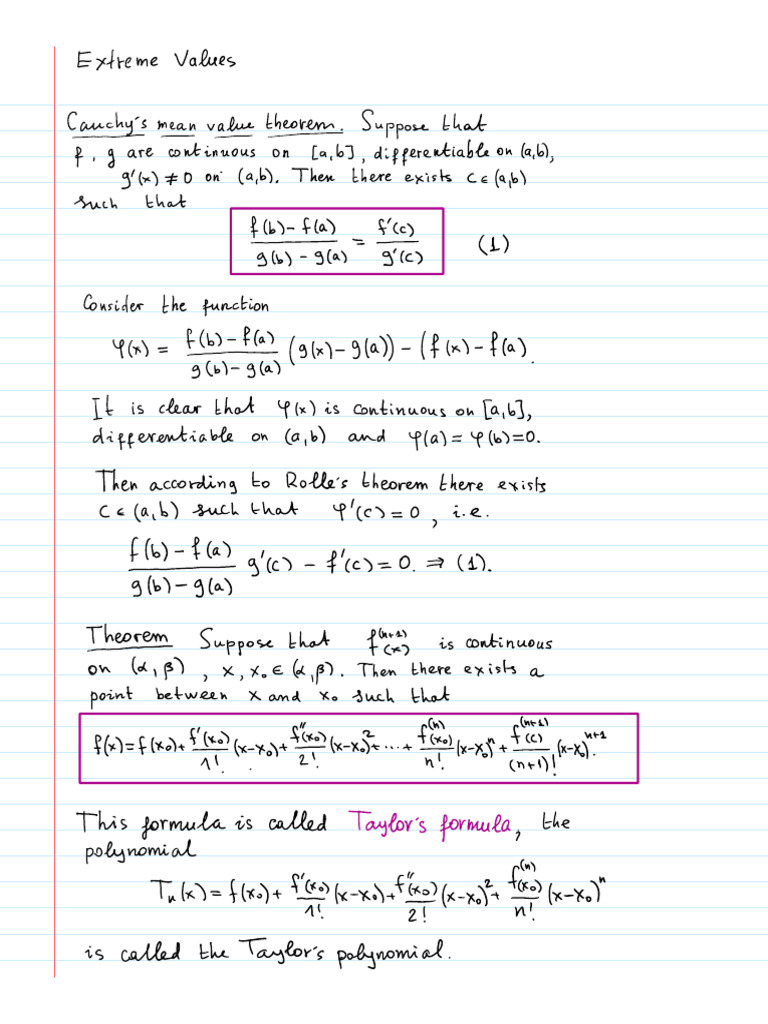 Extreme Values
Cauchy's mean value theorem. Suppose that
f, g are continuous on [a,b], differentiable on (a,b),
g'(x) ≠ 0 on (a,b). Then there exists c ∈ (a,b)
such that
(f(b) - f(a))/(g(b) - g(a)) = f'(c)/g'(c) (1)
Consider the function
φ(x) = (f(b) - f(a))/(g(b) - g(a)) (g(x) - g(a)) - (f(x) - f(a).
It is clear that φ(x) is continuous on [a,b],
differentiable on (a,b) and φ(a) = φ(b) = 0.
Then according to Rolle's theorem there exists
c ∈ (a,b) such that φ'(c) = 0, i.e.
(f(b) - f(a))/(g(b) - g(a)) g'(c) - f'(c) = 0. ⇒ (1).
Theorem Suppose that f^(n+1)(x) is continuous
on (α,β), x, x₀ ∈ (α,β). Then there exists a
point between x and x₀ such that
f(x) = f(x₀) + f'(x₀)/1! (x-x₀) + f''(x₀)/2! (x-x₀)² + ... + f^(n)(x₀)/n! (x-x₀)^n + f^(n+1)(c)/(n+1)! (x-x₀)^(n+1).
This formula is called Taylor's formula, the
polynomial
Tₙ(x) = f(x₀) + f'(x₀)/1! (x-x₀) + f''(x₀)/2! (x-x₀)² + f^(n)(x₀)/n! (x-x₀)^n
is called the Taylor's polynomial.